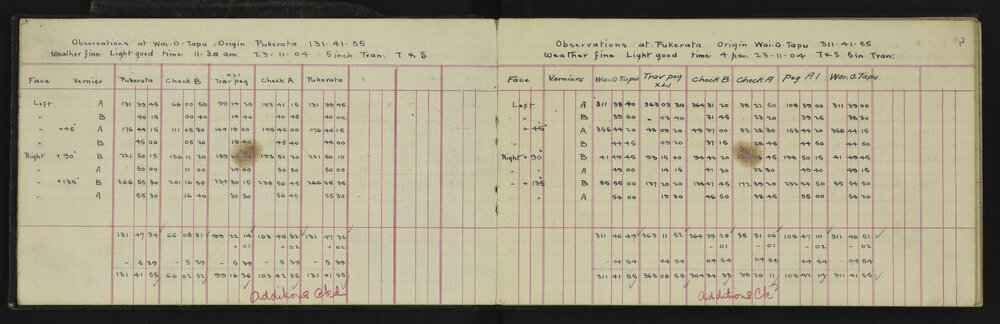 Observations at Wai-O-Tapu Origin Pukerata 131-41-55
Weather fine Light good time 11.30 am 23-11-04 5 inch Tran: T & S
X.L.I
Face Vernier Pukerata Check B Trav peg Check A Pukerata
Left A 131 39 45 66 00 50 99 14 20 103 41 15 131 39 45
" B 40 15 00 40 14 20 40 45 40 00
" +45° A 176 44 15 111 05 30 144 19 00 148 46 00 176 44 15
" B 45 00 05 20 19 40 45 40 45 00
Right +90° B 221 50 15 156 11 20 189 193 51 20 221 50 10
" A 50 00 11 00 24 40 50 50 50 00
" +135° B 266 55 30 201 16 50 234 30 15 238 56 45 266 55 35
" A 55 30 16 40 30 30 56 45 55 30
131 47 34 66 08 31 99 22 14 103 48 32 131 47 32
+ 01 + 02 + 02
- 5 39 - 5 39 - 5 39 - 5 39 - 5 39
131 41 55 66 02 52 99 16 36 103 42 55 131 41 55
Additions Ckd
Observations at Pukerata Origin Wai.O.Tapu 311-41-55
Weather fine Light good time 4 p.m. 23-11-04 T & S 5 in Tran:
Face Verniers Wai.O.Tapu Trav peg Check B Check A Peg A1 Wai.O.Tapu
X L I
Left A 311 38 40 363 03 30 364 31 20 38 22 50 108 39 00 311 39 00
" B 39 00 03 40 31 45 23 20 39 25 38 30
" +45° A 356 44 20 48 09 20 49 37 00 83 28 30 153 44 20 356 44 15
" B 44 45 09 37 15 28 45 44 50 44 50
Right +90° B 41 49 45 93 15 00 94 42 20 45 198 50 15 41 49 45
" A 49 00 14 15 41 30 33 30 49 40 49 15
" +135 B 85 55 00 137 20 20 138 47 45 172 39 20 232 54 50 85 54 50
" A 54 00 19 30 46 50 38 45 54 00 54 20
311 46 49 363 11 52 364 39 28 38 31 06 108 47 10 311 46 51
- 01 - 01 - 02 - 02
- 04 54 - 04 54 - 04 54 - 04 54 - 04 54 - 04 54
311 41 55 363 06 58 364 34 33 38 26 11 108 42 14 311 41 55
Additions Ckd